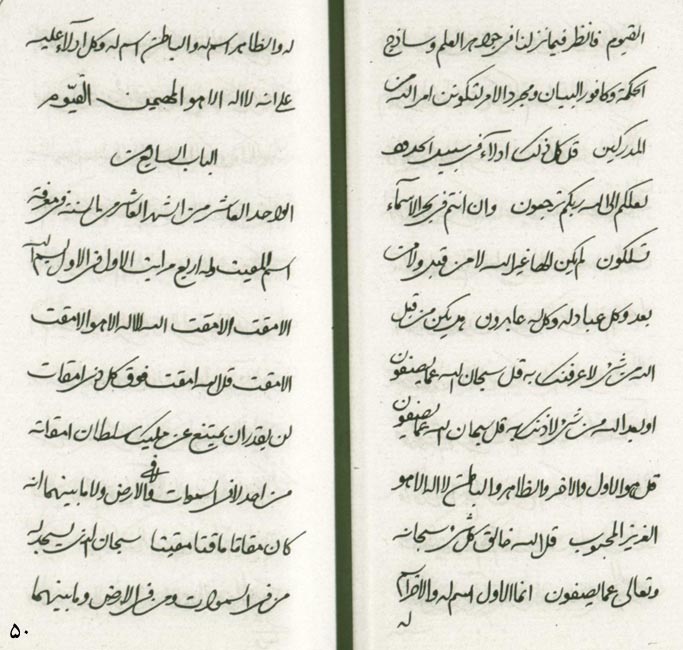 القیوم فانظر فیما نزلنا فی جواهر العلم وساذج
الحکمة وکافور البیان ومجرد الامر لتکونن امر الله من
المدرکین قل کل ذلک ادلاء فی سبیل الحق
لعلکم الی الله ربکم ترجعون وان انتم فی بحر الاسماء
تسلکون لم یکن الها غیر الله لا من قبل ولا من
بعد وکل عباد له وکل له عابدون هل یکن من قبل
الله من شیء لاعرفنک به قل سبحان الله عما یصفون
او بعد الله من شیء لاذکرنک به قل سبحان الله عما یصفون
قل هو الاول والاخر والظاهر والباطن لا اله الا هو
العزیز المحبوب قل الله خالق کل شیء سبحانه
وتعالی عما یصفون انما الاول اسم له والاخر اسم
له
له والظاهر اسم له والباطن اسم له وکل ادلاء علیه
علی انه لا اله الا هو المهیمن القیوم
الباب السابع من
الواحد العاشر من الشهر العاشر من السنة فی معرفة
اسم المقیت وله اربع مراتب الاول فی الاول بسم الله
الامقت الامقت الله لا اله الا هو الامقت
الامقت قل الله امقت فوق کل ذی امقات
لن یقدر ان یمتنع عن ملیک سلطان امقاته
من احد لا فی السموات ولا فی الارض ولا ما بینهما انه
کان مقاتا ماقتا مقیتا سبحان الذی یسجد له
من فی السموات ومن فی الارض وما بینهما
۵۰